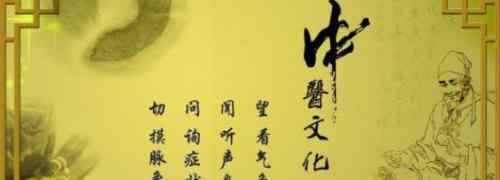 中醫文化
望看气色
闻听声
问询症状
切摸脉